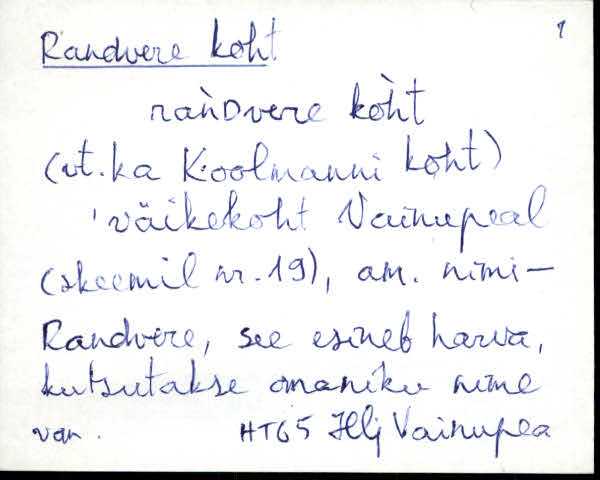 Randvere koht
rǹDvere kòht
(vt. ka Koolmanni koht)
'väikekoht Vainupeal
(skeemil nr. 19), am. nimi-
Randvere, see esineb harva,
kutsutakse omaniku nime
van. HT65 Hlj Vainupea